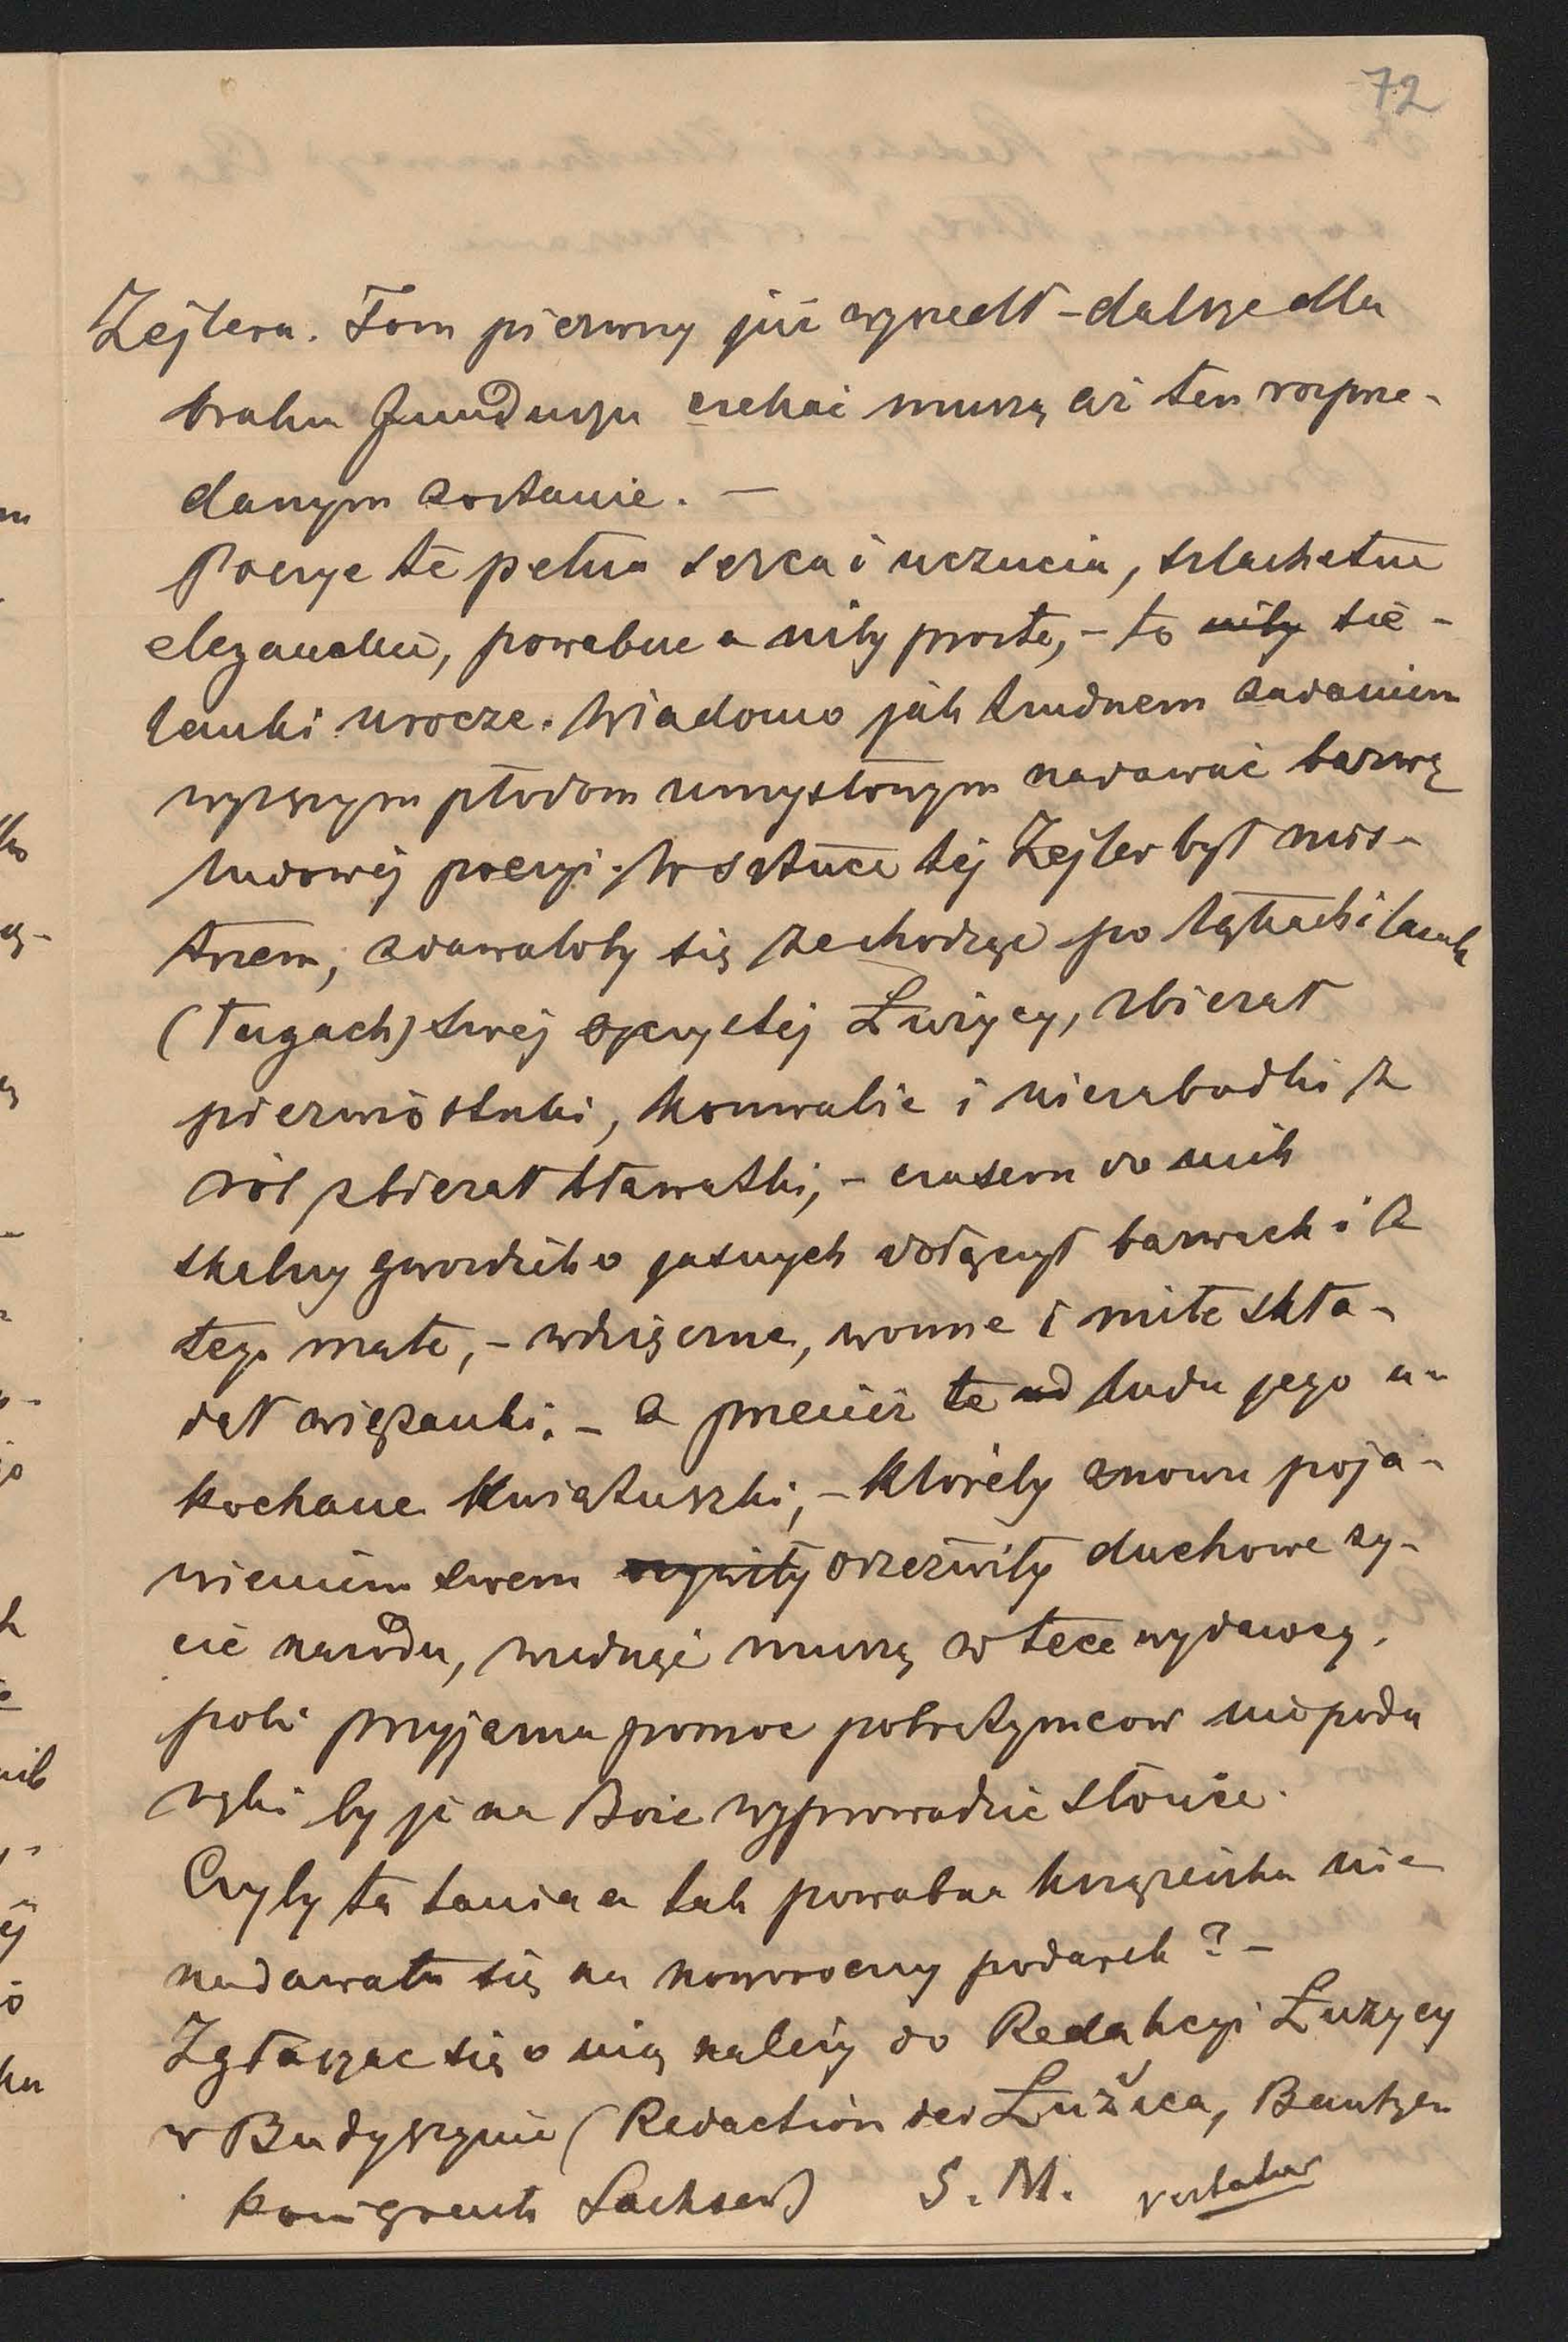 72
Zejlera. Tom pierwszy już wyszedł – dalsze dla
braku funduszu czekać muszą aż ten rozprze-
danym zostanie. –
Poezye te pełne serca i uczucia, szlachetne
eleganckie, powabne a niby proste, – to niby sie-
lanki urocze. Wiadomo jak trudnem zadaniem
wyższym płodom umysłowym nadawać barwę
ludowéj poezyi. W sztuce téj Zejler był mis-
trzem, zdawałoby się że chodząc po łąkach i lasach
(ługach) swéj ojczystéj Łużycy, zbierał
pierwiosnki, konwalie i niezabudki z
ról zbierał bławatki, – czasem do nich
skalny gwoździk o jasnych dołączył barwach i z
tego małe, – wdzięczne, wonne i miłe skła-
dał wiązanki. – A przecież te od ludu jego u-
kochane kwiatuszki, – któreby znowu poja-
wieniem swem ożywiły orzeźwiły duchowe ży-
cie narodu, więdnąć muszą w tece wydawcy,
póki przyjazna pomoc pobratymców nie poda
ręki by je na Boże wyprowadzić słońce.
Czyby ta tania a tak powabna książeczka nie
nadawała się na noworoczny podarek? –
Zgłaszac się o nią należy do Redakcyi Łużycy
w Budyszynie (Redaction der Łužica, Bautzen
Königreich Sachsen)   S. M.